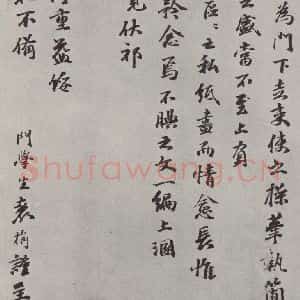 為門下走吏使之操筆執簡
之盛當不至上負
區區之私紙盡而情愈長惟
矜念焉不腆之文一編上溷
見伏祈
重益綏
不備
門學生袁桷謹呈
Shufawang.CN